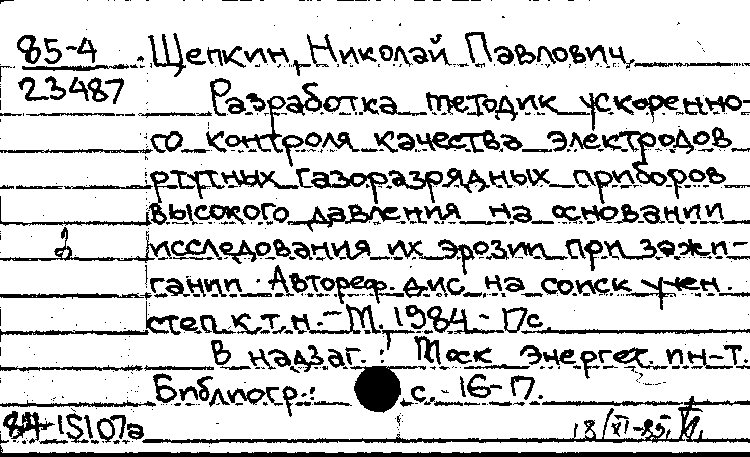 85-4 Щепкин, Николай Павлович.
23487
Разработка методик ускоренно-
го контроля качества электродов
ртутных газоразрядных приборов
высокого давления на основании
исследования их эрозии при зажи-
гании. Автореф. дис. на соиск учен.
степ к.т.н. - М., 1984 - 17с.
В надзаг.: Моск энергет. ин-т.
Библиогр.: с. 16-17.
84-15107а
18/XI-85.